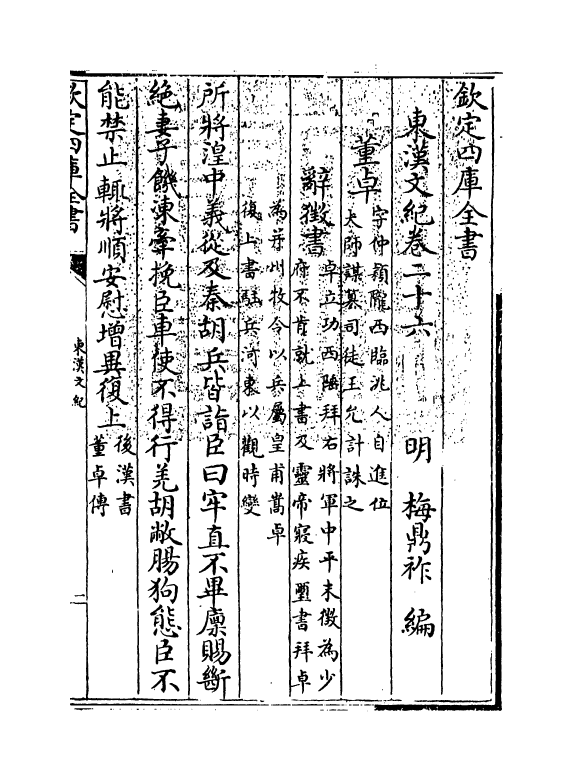 欽定四庫全書
東漢文紀卷二十六
明 梅鼎祚 編
董卓
字仲頴隴西臨洮人自進位
太師謀簒司徒王允計誅之
辭徵書
卓立功西陲拜右將軍中平末徵為少
府不肯就上書及靈帝寢疾璽書拜卓
為并州牧令以兵屬皇甫嵩卓
復上書駐兵河東以觀時變
所將湟中義從及秦胡兵皆詣臣曰牢直不畢廩賜斷
絶妻子饑凍牽挽臣車使不得行羌胡敝腸狗態臣不
能禁止輒將順安慰增異復上
後漢書
董卓傳
欽定四庫全書
東漢文紀
二